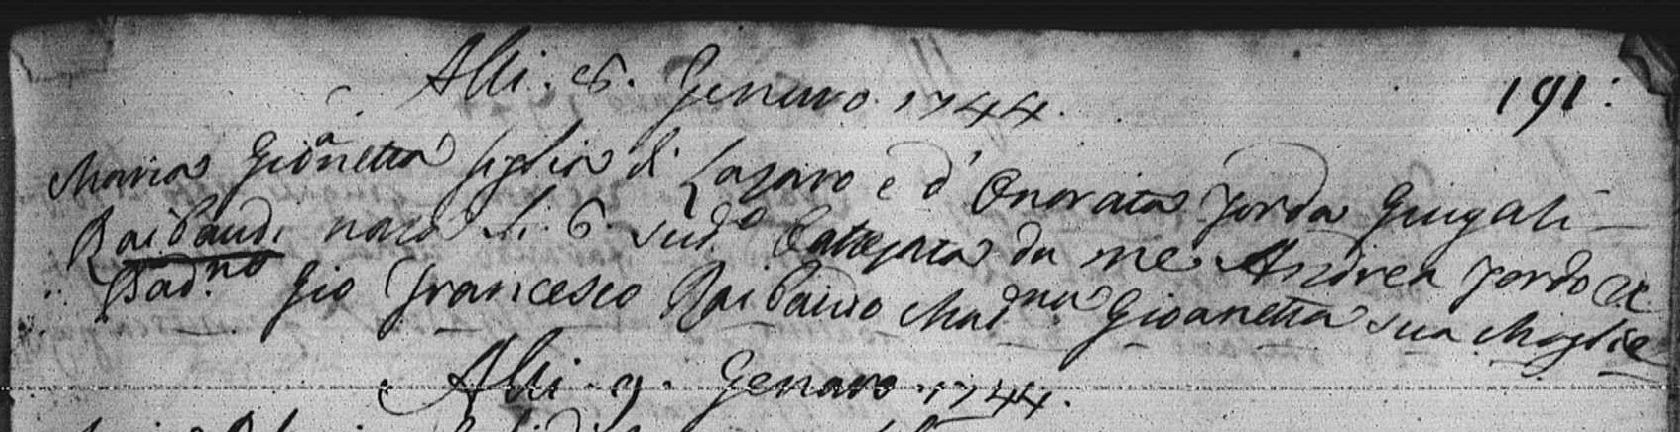 Alli. 6. Genaro. 1744.
191:
Maria Gioanetta figlia di Lazaro e d' Onorata Jorda Giugali
Raibaudi nata li. 6. sud.o Battezata da me Andrea Jordo
Pad.no Gio Francesco Raibaudo Mad.na Gioanetta sua Moglie
Alli. 9. Genaro. 1744.